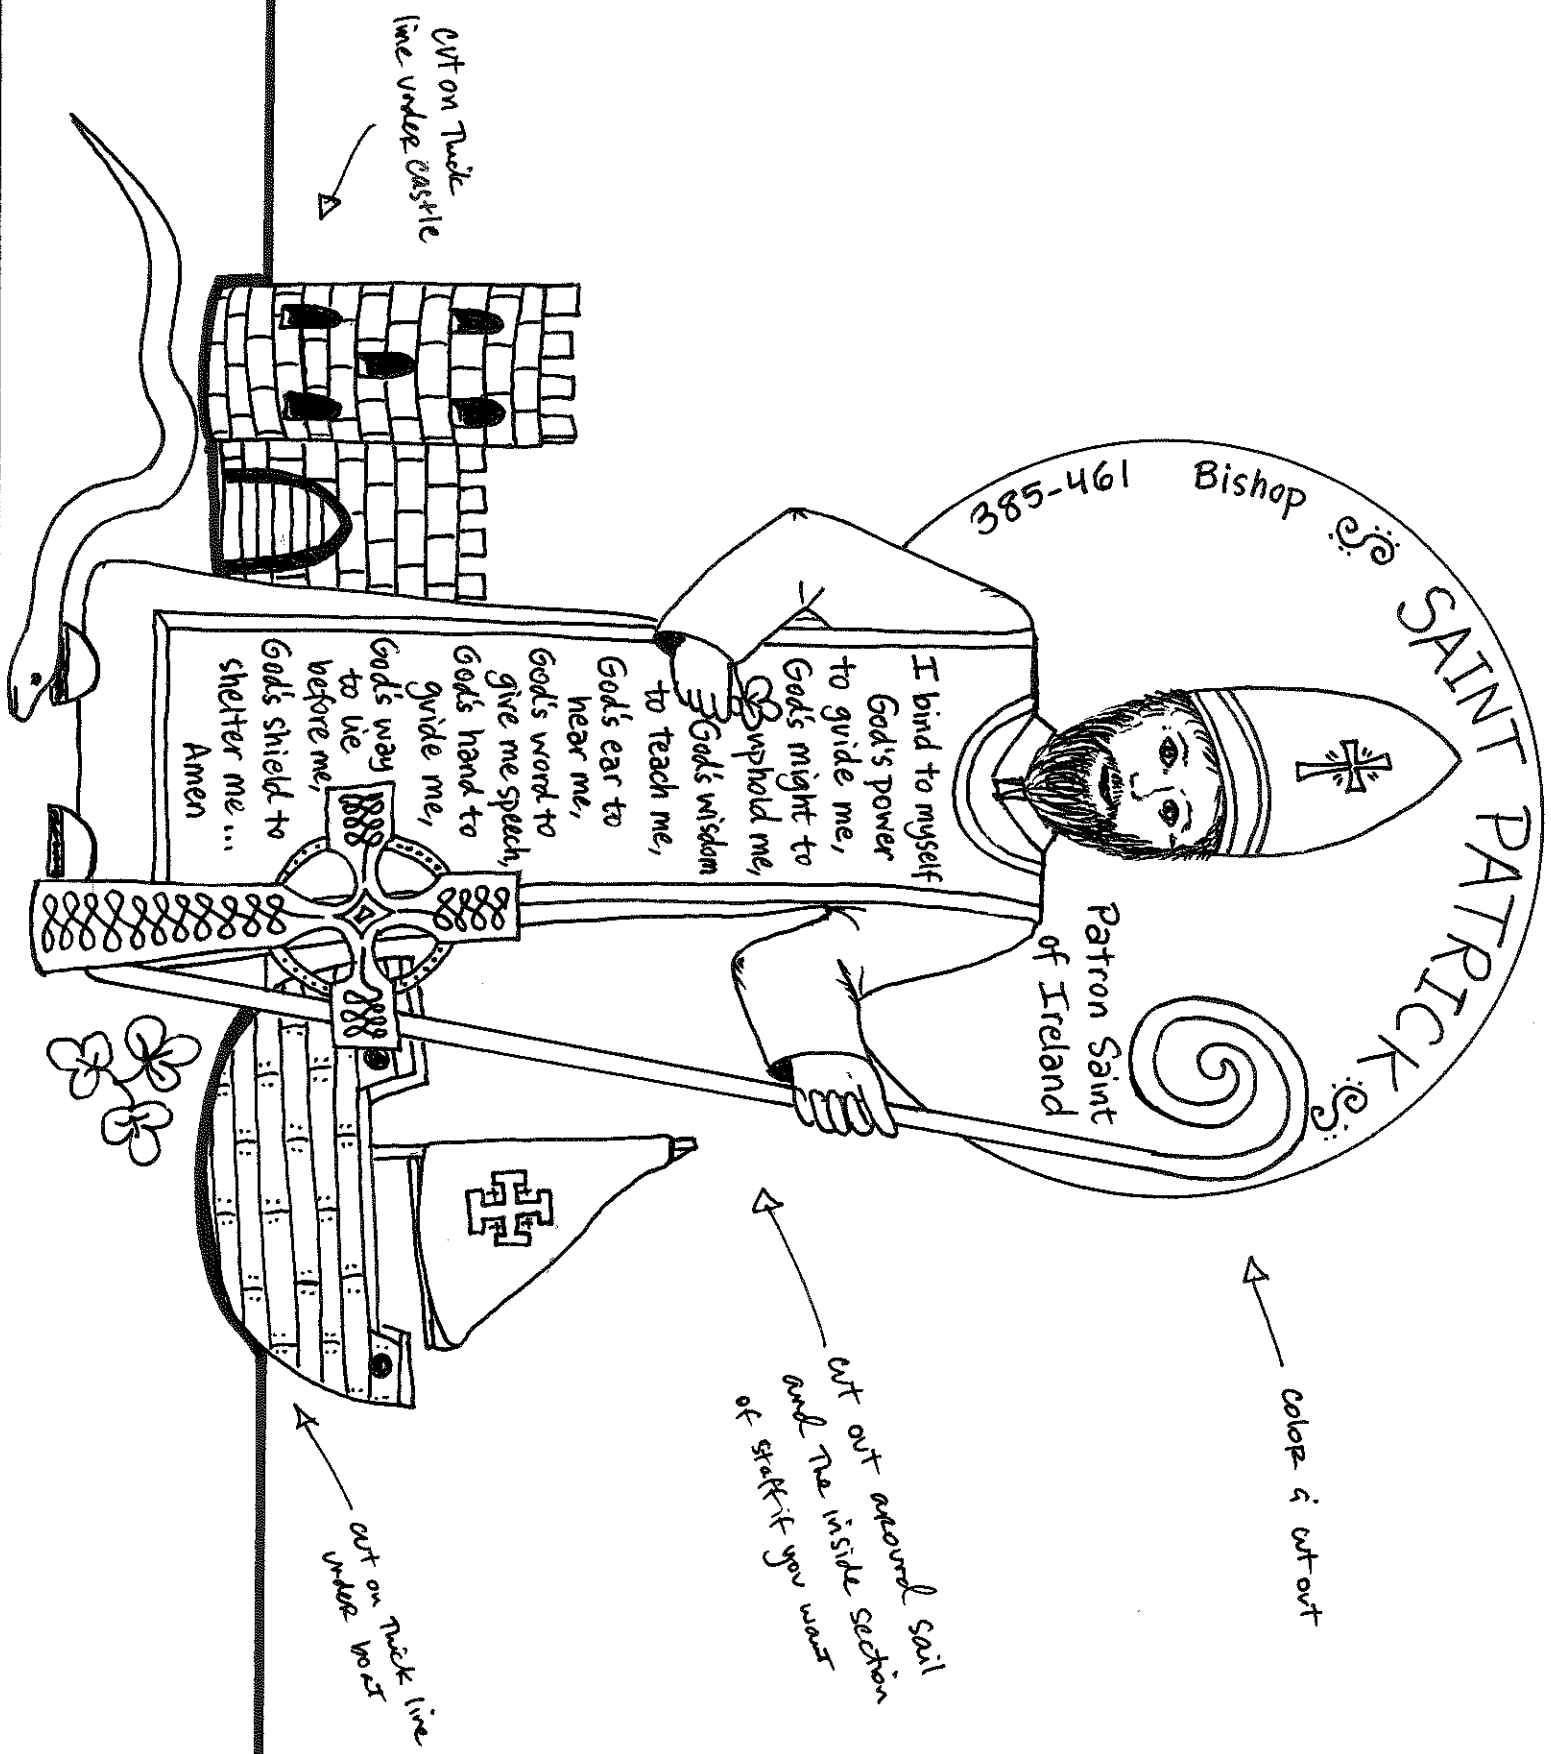 SAINT PATRICK
Bishop
385-461
Patron Saint
of Ireland
I bind to myself
God's power
to guide me,
God's might to
uphold me,
God's wisdom
to teach me,
God's ear to
hear me,
God's word to
give me speech,
God's hand to
guide me,
God's way
to lie
before me,
God's shield to
shelter me...
Amen
color & cut out
cut out around sail
and The inside section
of staff if you want
cut on Thick
line under castle
cut on Thick line
under boat